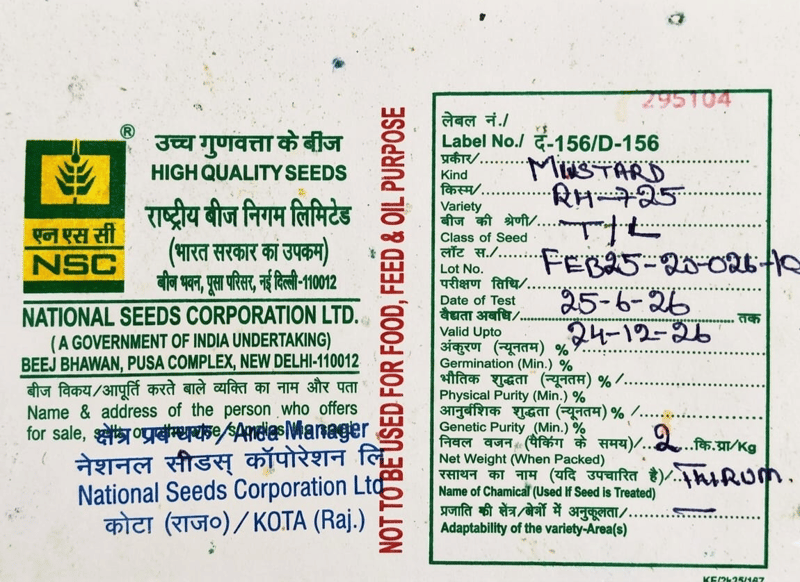 ®
एन एस सी
NSC
उच्च गुणवत्ता के बीज
HIGH QUALITY SEEDS
राष्ट्रीय बीज निगम लिमिटेड
(भारत सरकार का उपक्रम)
बीज भवन, पूसा परिसर, नई दिल्ली-110012
NATIONAL SEEDS CORPORATION LTD.
( A GOVERNMENT OF INDIA UNDERTAKING)
BEEJ BHAWAN, PUSA COMPLEX, NEW DELHI-110012
बीज विकय/आपूर्ति करते बाले व्यक्ति का नाम और पता
Name & address of the person who offers
for sale,
क्षेत्र प्रबन्धक / Area Manager
नेशनल सीडस् कॉपोरेशन लि
National Seeds Corporation Ltd
कोटा (राज०) / KOTA (Raj.)
NOT TO BE USED FOR FOOD, FEED & OIL PURPOSE
295104
लेबल नं./
Label No./ द-156/D-156
प्रकीर/
Kind MUSTARD
किस्म/
Variety RH-725
बीज की श्रेणी/
Class of Seed T/L
लॉट स./
Lot No. FEB25-20-026-10
परीक्षण तिथि/
Date of Test 25-6-26
वैद्यता अबधि/ तक
Valid Upto 24-12-26
अंकुरण (न्यूनतम) %
Germination (Min.) %
भौतिक शुद्धता (न्यूनतम) % /
Physical Purity (Min.) %
आनुर्बशिक शुद्धता (न्यूनतम) % /
Genetic Purity (Min.) %
निवल वजन (पैकिंग के समय)/ 2 कि.ग्रा/Kg
Net Weight (When Packed)
रसाथन का नाम (यदि उपचारित है)/ THIRUM.
Name of Chamical (Used If Seed is Treated)
प्रजाति की सेंत्र/बेत्रों में अनुकूलता/ —
Adaptability of the variety-Area(s)